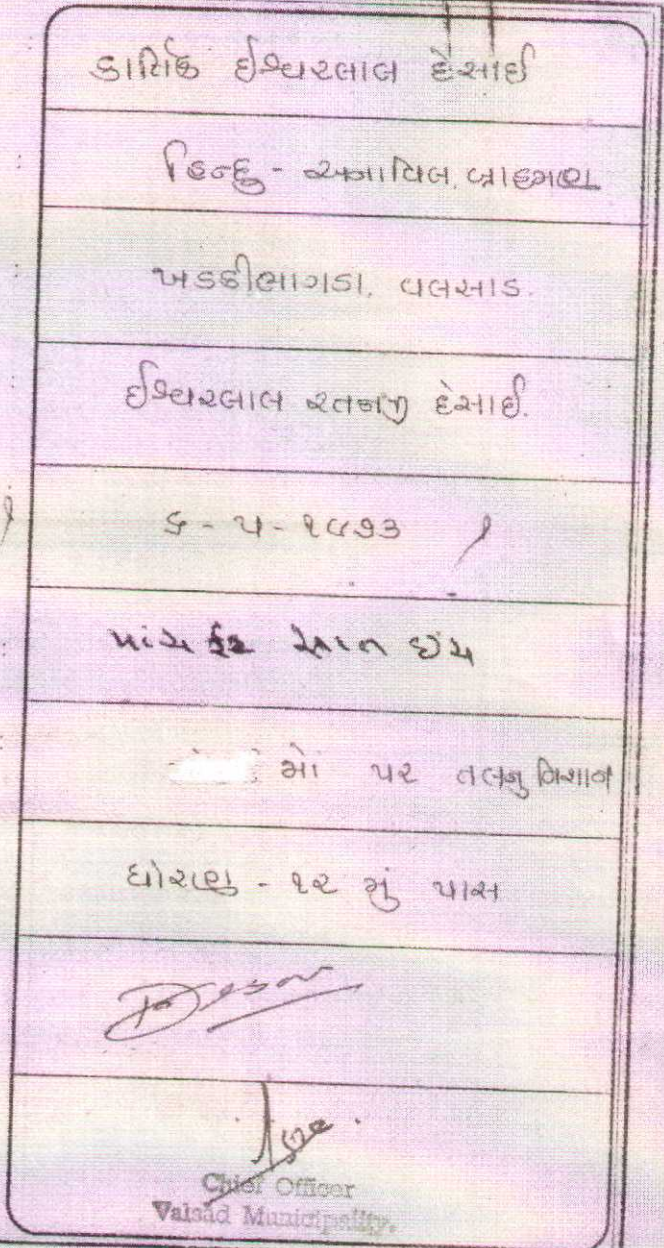 કાર્તિક ઈશ્વરલાલ દેસાઈ
હિન્દુ - અનાવિલ બ્રાહ્મણ
ખડકીભાગડા, વલસાડ.
ઈશ્વરલાલ રતનજી દેસાઈ.
૬ - ૫ - ૧૯૭૩
પાંચ ફુટ સાત ઇંચ
મોં પર તલનુ નિશાન
ધોરણ - ૧૨ મું પાસ
Desai
Chief Officer
Valsad Municipality.